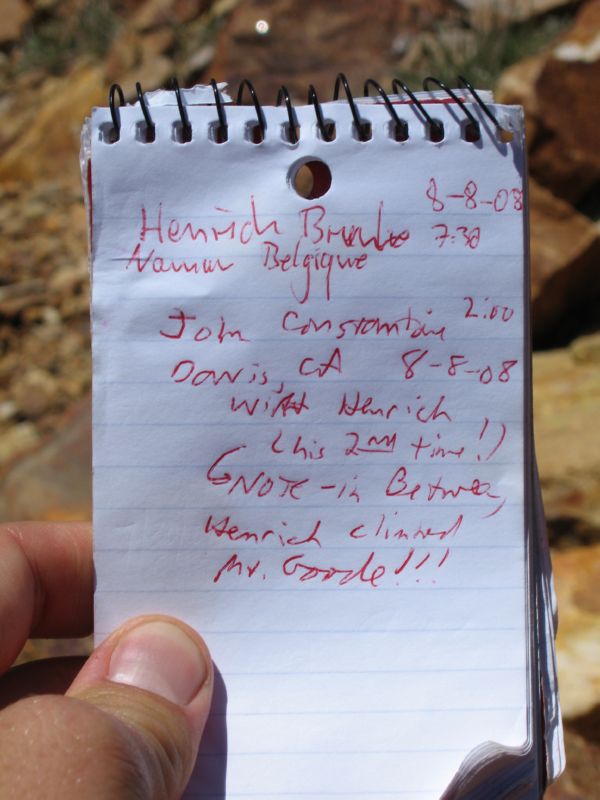 8-8-08
Henrich 7:30
Namur Belgique
John Constantine 2:00
Davis, CA 8-8-08
with Henrich
(his 2nd time!)
NOTE - in Between,
Henrich climbed
Mt. Goode!!!